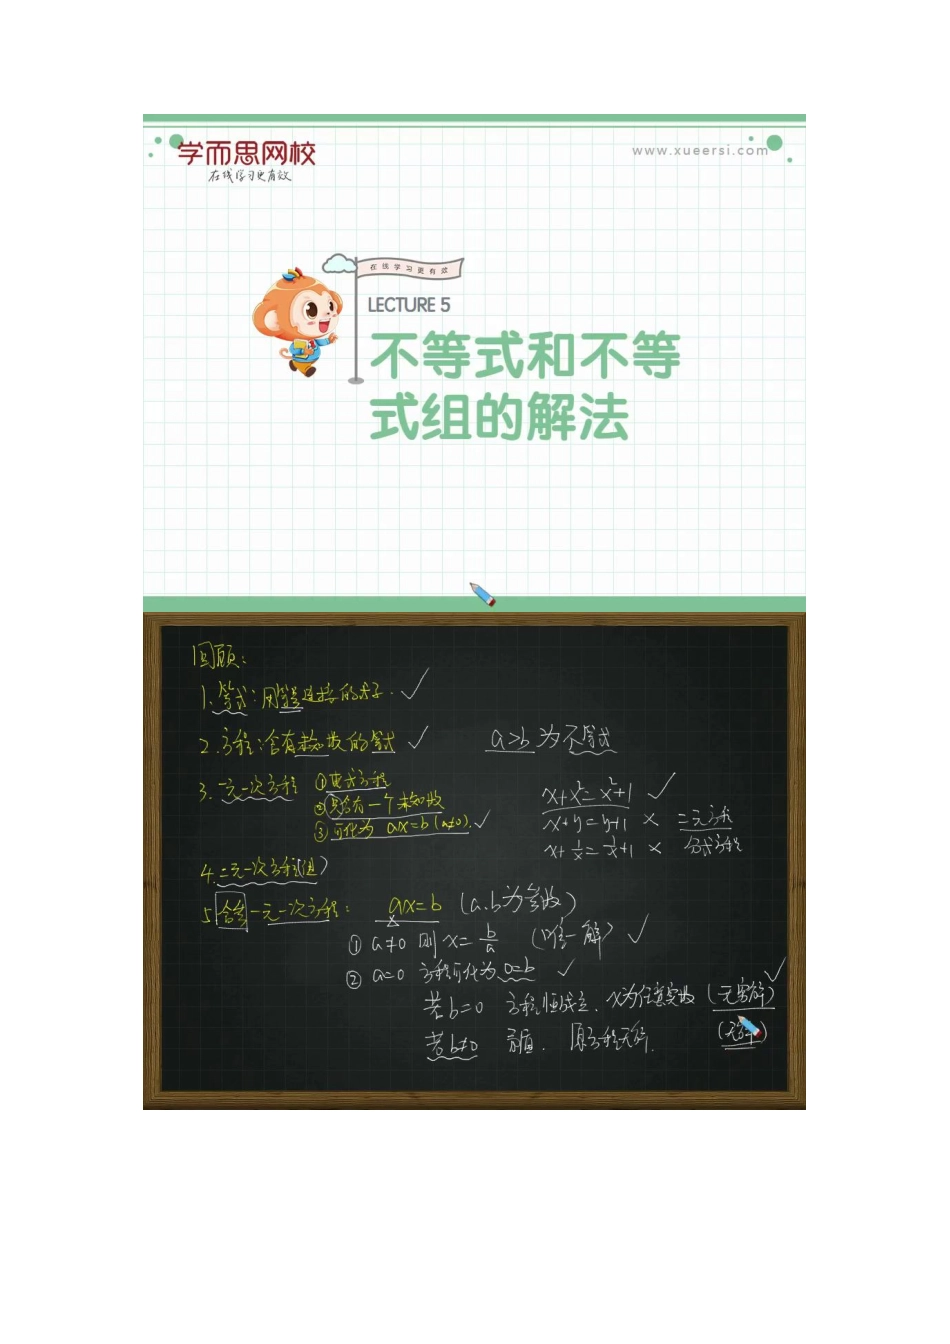 学而思网校
在线学习更有效
www.xueersi.com
在线学习更有效
LECTURE 5
不等式和不等
式组的解法
回顾:
1.等式:用等号连接的式子.✓
2.方程:含有未知数的等式 ✓
a>b 为不等式
3.一元一次方程 ①整式方程
②只含有一个未知数
③可化为 ax=b(a≠0).✓
x+x²=x²+1 ✓
x+y=y+1 × 二元方程
x+1/x=1/x+1 × 分式方程
4.二元一次方程(组)
5.含参一元一次方程: ax=b (a.b为参数)
① a≠0 则 x=b/a (唯一解) ✓
② a=0 方程可化为0=b ✓
若b=0 方程恒成立. x为任意实数 (无穷解) ✓
若b≠0 矛盾. 原方程无解. (无解)